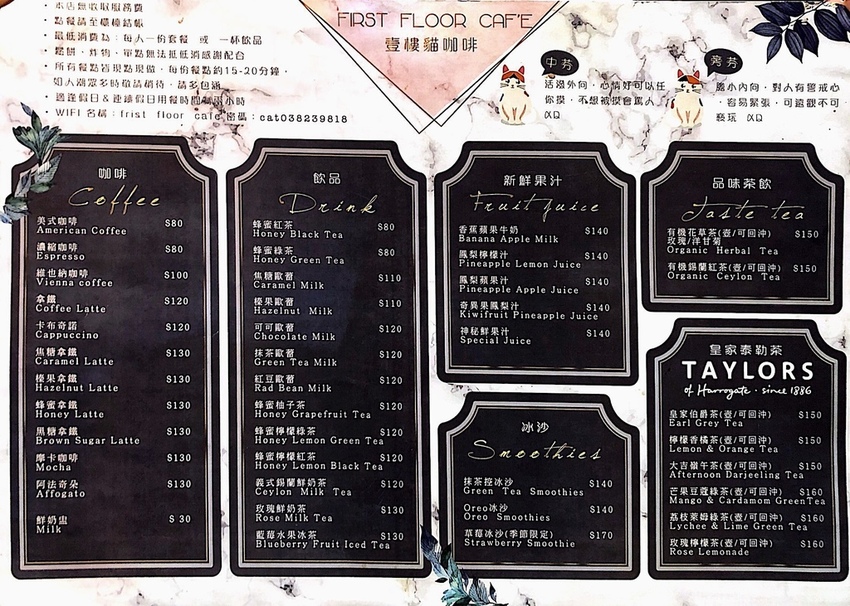 本店無收取服務費
點餐請至櫃檯結帳
最低消費為：每人一份套餐 或 一杯飲品
鬆餅、炸物、單點無法抵低消感謝配合
所有餐點皆現點現做，每份餐點約15-20分鐘，
如人潮眾多時敬請稍待，請多包涵
適逢假日&連續假日用餐時間 小時
WIFI 名稱：frist floor cafe 密碼：cat038239818
FIRST FLOOR CAF'E
壹樓貓咖啡
中芬
活潑外向，心情好可以任
你摸，不想被摸會罵人
XD
旁芬
膽小內向，對人有警戒心
，容易緊張，可遠觀不可
褻玩 XD
咖啡
Coffee
美式咖啡 $80
American Coffee
濃縮咖啡 $80
Espresso
維也納咖啡 $100
Vienna coffee
拿鐵 $120
Coffee Latte
卡布奇諾 $120
Cappuccino
焦糖拿鐵 $130
Caramel Latte
榛果拿鐵 $130
Hazelnut Latte
蜂蜜拿鐵 $130
Honey Latte
黑糖拿鐵 $130
Brown Sugar Latte
摩卡咖啡 $130
Mocha
阿法奇朵 $130
Affogato
鮮奶盅 $ 30
Milk
飲品
Drink
蜂蜜紅茶 $80
Honey Black Tea
蜂蜜綠茶 $80
Honey Green Tea
焦糖歐蕾 $110
Caramel Milk
榛果歐蕾 $110
Hazelnut Milk
可可歐蕾 $120
Chocolate Milk
抹茶歐蕾 $120
Green Tea Milk
紅豆歐蕾 $120
Rad Bean Milk
蜂蜜柚子茶 $120
Honey Grapefruit Tea
蜂蜜檸檬綠茶 $120
Honey Lemon Green Tea
蜂蜜檸檬紅茶 $120
Honey Lemon Black Tea
義式錫蘭鮮奶茶 $120
Ceylon Milk Tea
玫瑰鮮奶茶 $130
Rose Milk Tea
藍莓水果冰茶 $130
Blueberry Fruit Iced Tea
新鮮果汁
Fruit juice
香蕉蘋果牛奶 $140
Banana Apple Milk
鳳梨檸檬汁 $140
Pineapple Lemon Juice
鳳梨蘋果汁 $140
Pineapple Apple Juice
奇異果鳳梨汁 $140
Kiwifruit Pineapple Juice
神秘鮮果汁 $140
Special Juice
冰沙
Smoothies
抹茶控冰沙 $140
Green Tea Smoothies
Oreo冰沙 $140
Oreo Smoothies
草莓冰沙(季節限定) $170
Strawberry Smoothie
品味茶飲
Taste tea
有機花草茶(壺/可回沖) $150
玫瑰/洋甘菊
Organic Herbal Tea
有機錫蘭紅茶(壺/可回沖) $150
Organic Ceylon Tea
皇家泰勒茶
TAYLORS
of Harrogate · since 1886
皇家伯爵茶(壺/可回沖) $150
Earl Grey Tea
檸檬香橘茶(壺/可回沖) $150
Lemon & Orange Tea
大吉嶺午茶(壺/可回沖) $150
Afternoon Darjeeling Tea
芒果豆蔻綠茶(壺/可回沖) $160
Mango & Cardamom GreenTea
荔枝萊姆綠茶(壺/可回沖) $160
Lychee & Lime Green Tea
玫瑰檸檬茶(壺/可回沖) $160
Rose Lemonade